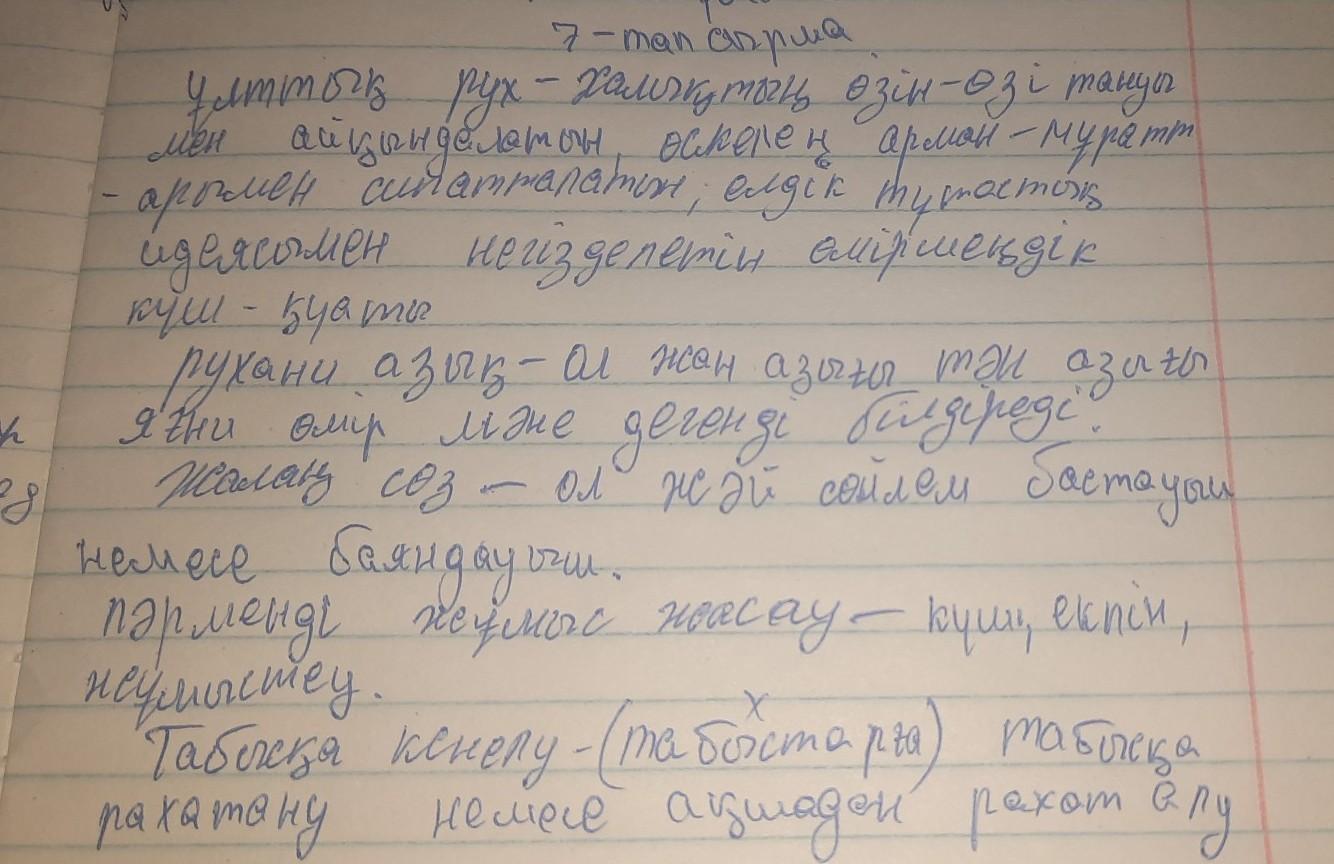 7-тапсырма
ұлттық рух - халықтың өзін-өзі тануы
мен айқындалатын, өскелең арман-мұратт
- арымен сипатталатын, елдік тұтастық
идеясымен негізделетін өміршеңдік
күш-қуаты
рухани азық - ол жан азығы тән азығы
яғни өмір және дегенді білдіреді.
Жалаң сөз - ол жәй сөйлем бастауыш
немесе баяндауыш.
пәрменді жұмыс жасау - күш, екпін,
жұмыстеу.
Табысқа кенелу - (табыстарға) табысқа
рахатану немесе ақшадан рахат алу